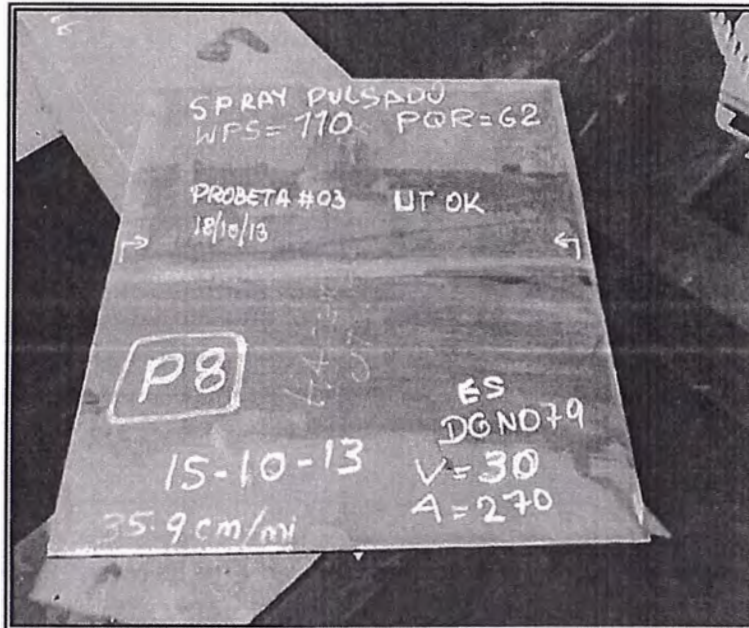 SPRAY PULSADO
WPS=110 PQR=62
PROBETA #03 UT OK
18/10/13
P8
ES
DGNO79
15-10-13 V=30
35.9 cm/mi A=270